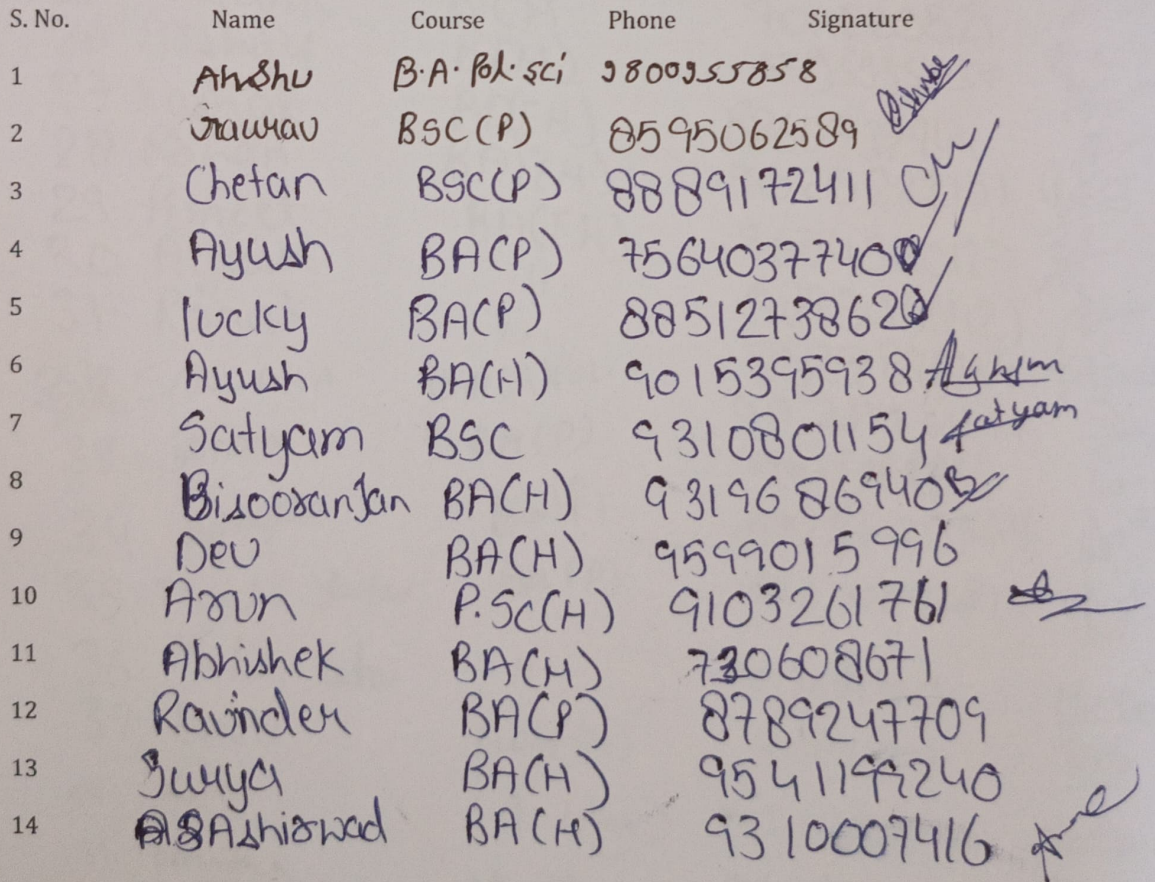 S. No. Name Course Phone Signature
1 Anshu B.A. Pol. sci 9800955858
2 Gaurav BSC(P) 8595062589
3 Chetan BSC(P) 8889172411
4 Ayush BA(P) 7564037740
5 lucky BA(P) 8851273862
6 Ayush BA(H) 9015395938
7 Satyam BSC 9310801154 Satyam
8 Bisooranjan BA(H) 9319686940
9 Dev BA(H) 9599015996
10 Arun P.Sc(H) 9103261761
11 Abhishek BA(H) 730608671
12 Ravinder BA(P) 8789247709
13 Surya BA(H) 9541199240
14 Ashirwad BA(H) 9310007416